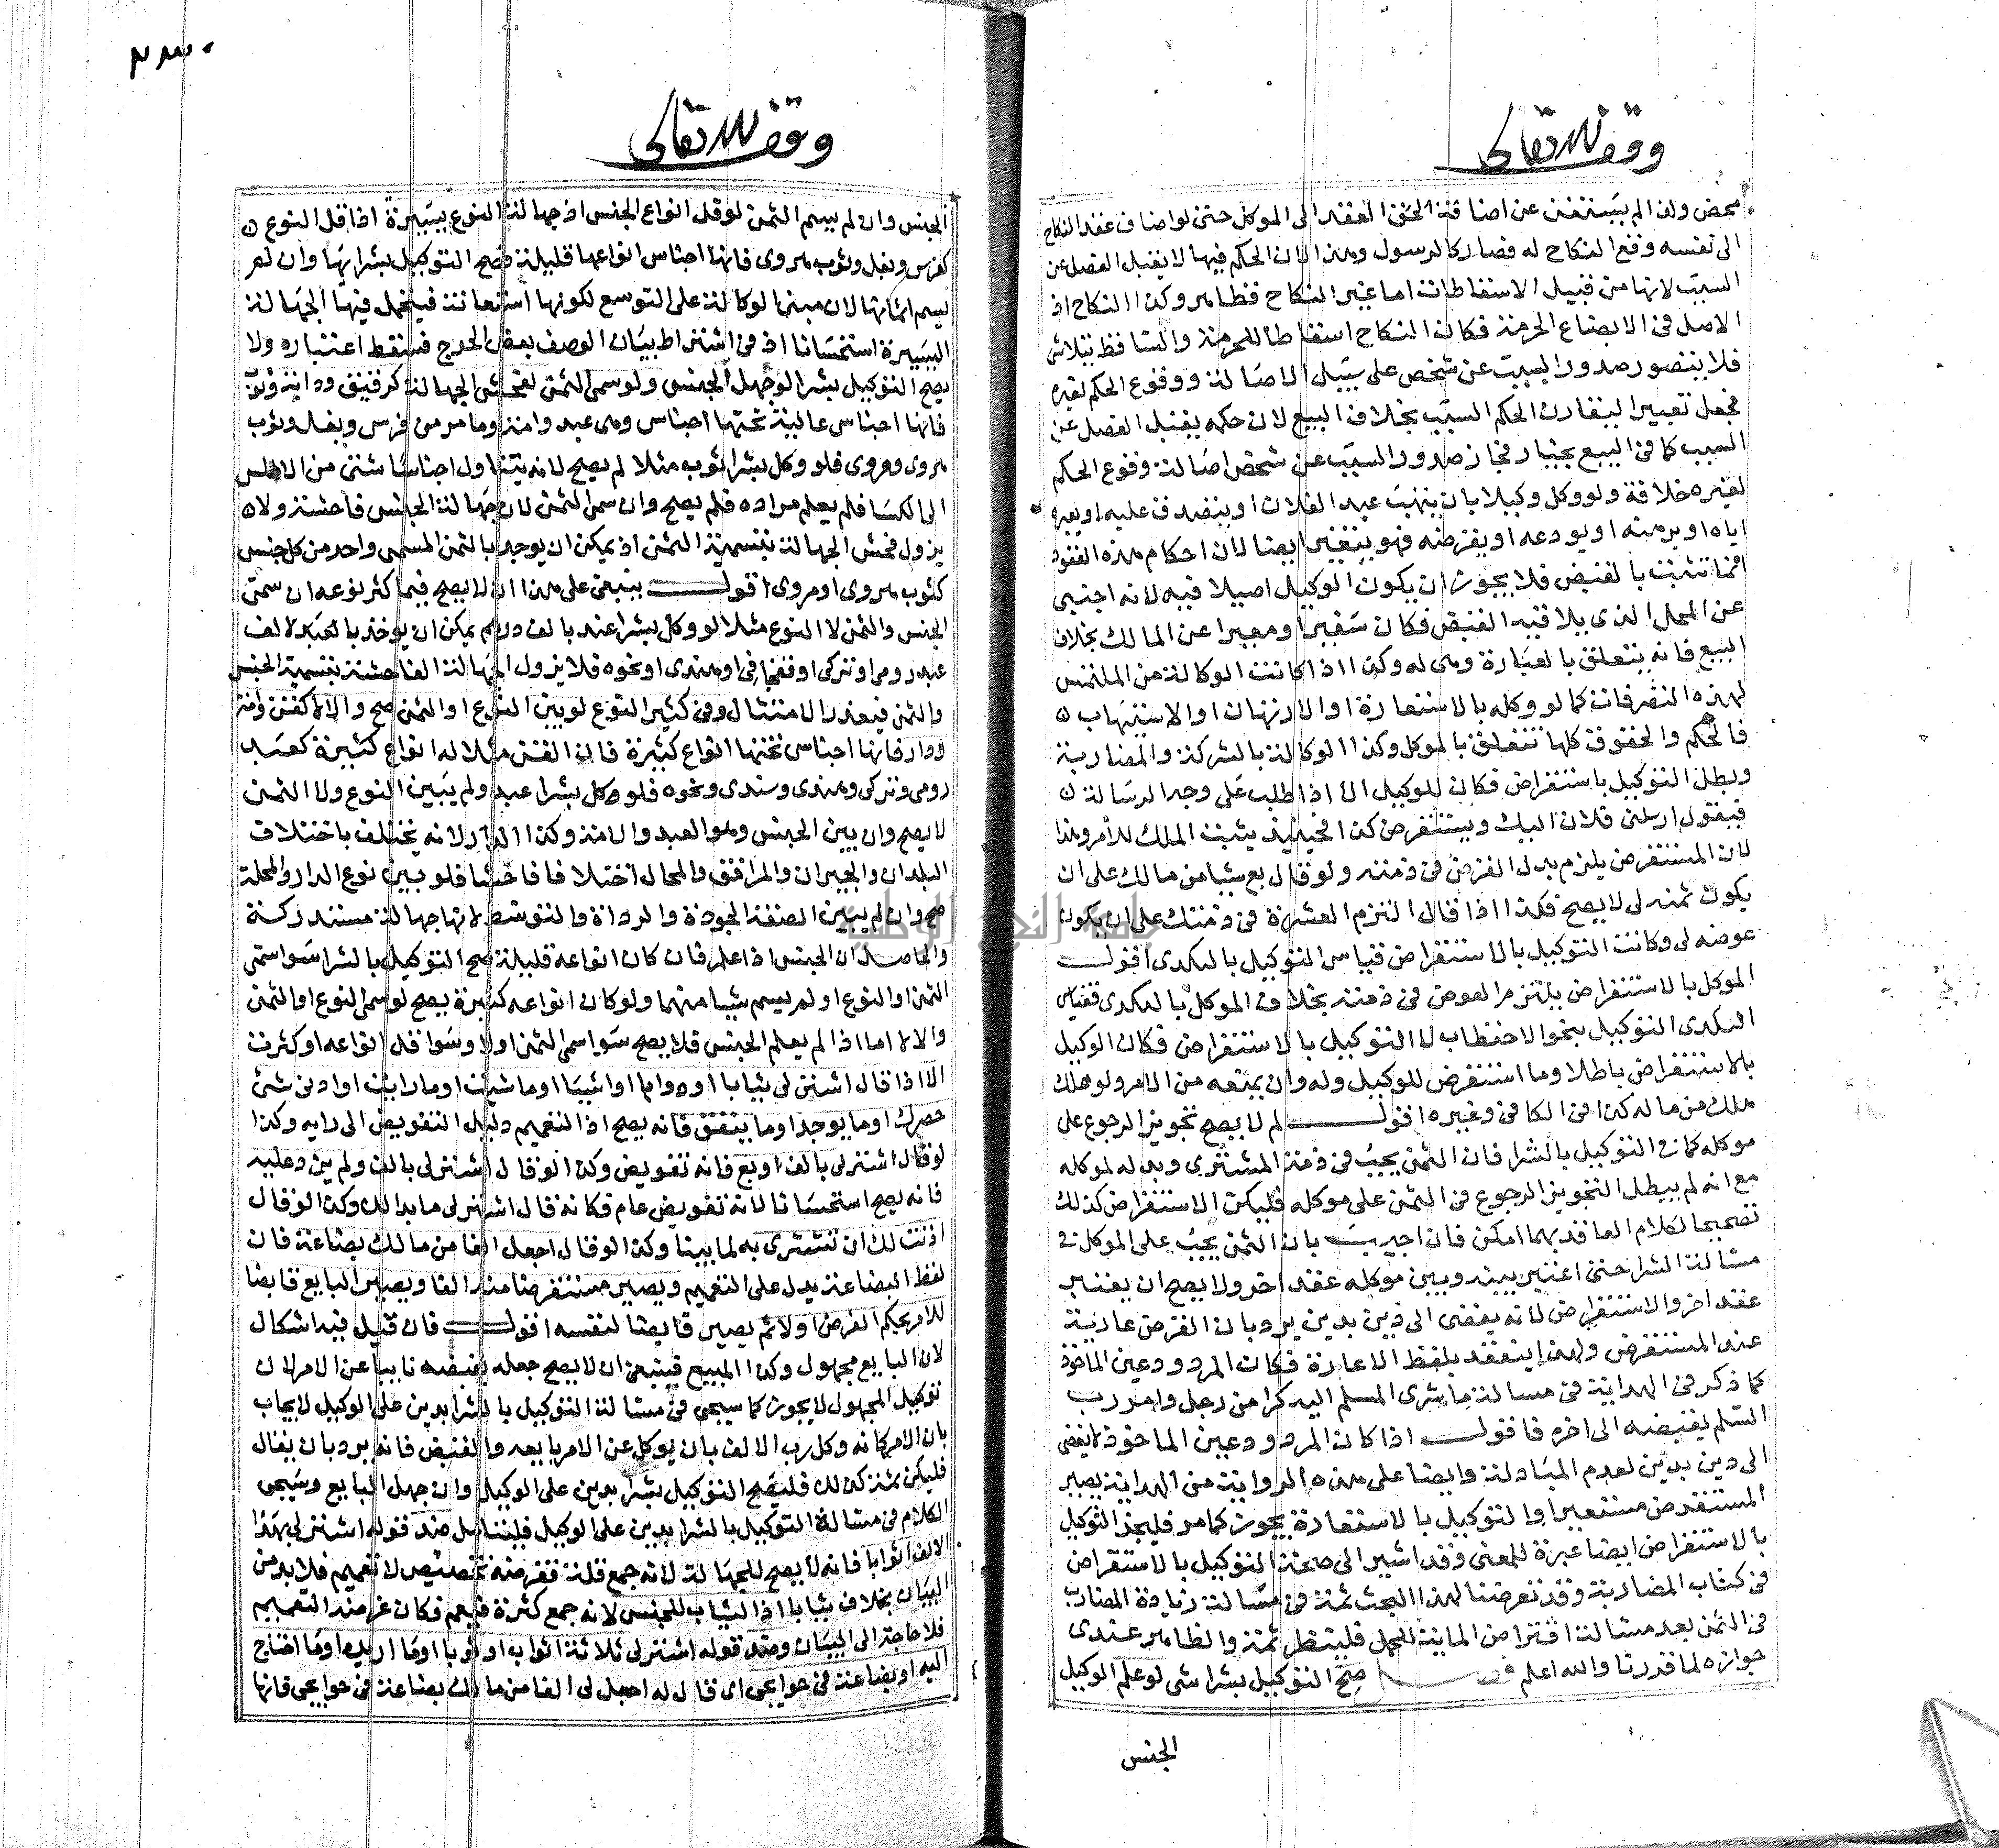 وقف لله تعالى
محض ولذا لم يستغن عن اضافة العقد الى الموكل حتى لو اضاف عقد النكاح
الى نفسه وقع النكاح له فصار كالرسول وهذا لان الحكم فيها لا يقبل الفصل عن
السبب لانها من قبيل الاسقاطات اما غير النكاح فظاهر وكذا النكاح اذ
الاصل في الابضاع الحرمة فكان النكاح اسقاطا للحرمة والساقط يتلاشى
فلا يتصور صدور السبب عن شخص على سبيل الاصالة ووقوع الحكم لغيره
فجعل تعبيرا ليقارن الحكم السبب بخلاف البيع لان حكمه يقبل الفصل عن
السبب كما في البيع بخيار فجاز صدور السبب عن شخص اصالة وقوع الحكم
لغيره خلافة ولو وكل وكيلا بان يهب عبد الفلان او يتصدق عليه او يعيره
اياه او يرهنه او يودعه او يقرضه فهو تعبير ايضا لان احكام هذه العقود
انما تثبت بالقبض فلا يجوز ان يكون الوكيل اصيلا فيه لانه اجنبي
عن المحل الذي يلاقيه القبض فكان سفيرا ومعبرا عن المالك بخلاف
البيع فانه يتعلق بالعبارة وهي له وكذا اذا كانت الوكالة من الملتمس
لهذه التصرفات كما لو وكله بالاستعارة او الارتهان او الاستيهاب
فالحكم والحقوق كلها تتعلق بالموكل وكذا الوكالة بالشركة والمضاربة
وبطل التوكيل باستقراض فكان للوكيل الا اذا طلب على وجه الرسالة
فيقول ارسلني فلان اليك ويستقرض كذا فحينئذ يثبت الملك للآمر وهذا
لان المستقرض يلزم بدل القرض في ذمته ولو قال بع شيئا من مالك على ان
يكون ثمنه لي لا يصح فكذا اذا قال التزم العشرة في ذمتك على ان يكون
عوضه لي وكانت التوكيل بالاستقراض قياس التوكيل بالتكدي اقول
الموكل بالاستقراض يلتزم العوض في ذمته بخلاف الموكل بالتكدي فقياس
التكدي التوكيل بنحو الاحتطاب لا التوكيل بالاستقراض فكان الوكيل
بالاستقراض باطلا وما استقرض للوكيل وله وان يمنعه من الامر ولو هلك
هلك من ماله كذا في الكافي وغيره اقول لم لا يصح تجويز الرجوع على
موكله كما في التوكيل بالشرا فان الثمن يجب في ذمة المشتري وبدله لموكله
مع انه لم يبطل التجويز الرجوع في الثمن على موكله فليكن الاستقراض كذلك
تصحيحا لكلام العاقد بهما امكن فان اجيب بان الثمن يجب على الموكل في
مسالة الشرا حتى اعتبر بينه وبين موكله عقد اخر ولا يصح ان يعتبر
عقد اخر والاستقراض لانه يفضي الى دين بدين يرد بان القرض عارية
عند المستقرض ولهذا ينعقد بلفظ الاعارة فكان المردود عين الماخوذ
كما ذكر في الهداية في مسالة ما شرى المسلم اليه كرا من رجل وامر رب
السلم بقبضه الى اخره فاقول اذا كان المردود عين الماخوذ لا يفضي
الى دين بدين لعدم المبادلة وايضا على هذه الرواية من الهداية يصير
المستقرض مستعيرا والتوكيل بالاستعارة يجوز كما مر فليجز التوكيل
بالاستقراض ايضا عبرة للمعنى وقد اشير الى صحة التوكيل بالاستقراض
في كتاب المضاربة وقد تعرضنا لهذا البحث ثمة في مسالة زيادة المضارب
في الثمن بعد مسالة اقتراض الماية للحمل فلينظر ثمة والظاهر عندي
جوازه لما قدرنا والله اعلم صح التوكيل بشرا شي لو علم الوكيل
الجنس
وقف لله تعالى
الجنس وان لم يسم الثمن لو قل انواع الجنس اذ جهالة النوع يسيرة اذا قل النوع
كفرس وبغل وثوب هروي فانها اجناس انواعها قليلة فصح التوكيل بشرايها وان لم
يسم اثمانها لان مبنى الوكالة على التوسع لكونها استعانة فيتحمل فيها الجهالة
اليسيرة استحسانا اذ في اشتراط بيان الوصف بعض الحرج فسقط اعتباره ولا
يصح التوكيل بشرا لو جهل الجنس ولو سمى الثمن لفحش الجهالة كرقيق ودابة وثوب
فانها اجناس عالية تحتها اجناس وهي عبد وامة وما مر من فرس وبغل وثوب
هروي ومروي فلو وكل بشرا ثوب مثلا لم يصح لانه يتناول اجناسا شتى من الاطلس
الى الكسا فلم يعلم مراده فلم يصح وان سمى الثمن لان جهالة الجنس فاحشة ولان
يزول فحش الجهالة بتسمية الثمن اذ يمكن ان يوجد بالثمن المسمى واحد من كل جنس
كثوب هروي او مروي اقول ينبغي على هذا ان لا يصح فيما كثر نوعه ان سمى
الجنس والثمن لا النوع مثلا لو وكل بشرا عبد بالف درهم يمكن ان يوخذ بالعبد لالف
عبد رومي او تركي او قفجاقي او هندي او نحوه فلا يزول الجهالة الفاحشة بتسمية الجنس
والثمن فيعذر الامتثال وفي كثير النوع لو بين النوع او الثمن صح والا لا كقن وامة
ودار فانها اجناس تحتها انواع كثيرة فان القن مثلا له انواع كثيرة كعبد
رومي وتركي وهندي وسندي ونحوه فلو وكل بشرا عبد ولم يبين النوع ولا الثمن
لا يصح وان بين الجنس وهو العبد والامة وكذا الدار لانه يختلف باختلاف
البلدان والجيران والمرافق والمحال اختلافا فاحشا فلو بين نوع الدار والمحلة
صح وان لم يبين الصفة الجودة والرداة والتوسط لانها جهالة مستدركة
والحاصل ان الجنس اذا علم فان كان انواعه قليلة صح التوكيل بالشرا سوا سمى
الثمن او النوع او لم يسم شيا منهما ولو كان انواعه كثيرة يصح لو سمى النوع او الثمن
والا لا اما اذا لم يعلم الجنس فلا يصح سوا سمى الثمن اولا وسوا قل انواعه او كثرت
الا اذا قال اشتر لي ثيابا او دوابا او اشيا او ما شيت او ما رايت او ادنى شئ
حضرك او ما يوجد او ما يتفق فانه يصح اذ التعميم دليل التفويض الى رايه وكذا
لو قال اشتر لي بالف او بع فانه تفويض وكذا لو قال اشتر لي بالف ولم يزد عليه
فانه يصح استحسانا لانه تفويض عام فكانه قال اشتر لي ما بدا لك وكذا لو قال
اذنت لك ان تشتري به لما بينا وكذا لو قال اجعل الفا من مالك بضاعة فان
لفظ البضاعة يدل على التعميم ويصير مستقرضا منه الفا ويصير البايع قابضا
للامر بحكم القرض اولا ثم يصير قابضا لنفسه اقول فان قيل فيه اشكال
لان البايع مجهول وكذا المبيع فينبغي ان لا يصح جعله بقبضه نايبا عن الامر لان
توكيل المجهول لا يجوز كما سيجي في مسالة التوكيل بالشرا بدين على الوكيل لا يجاب
بان الامر كانه وكل رب الالف بان يوكل عن الامر بايعه والقبض فانه يرد بان يقال
فليكن ثمة كذلك فليصح التوكيل بشرا بدين على الوكيل وان جهل البايع وسيجي
الكلام في مسالة التوكيل بالشرا بدين على الوكيل فليتامل ضد قوله اشتر لي بهذا
الالف اثوابا فانه لا يصح للجهالة لانه جمع قلة فغرضه تخصيص لا تعميم فلا بد من
البيان بخلاف ثيابا اذ الثياب للجنس لانه جمع كثرة فيعم فكان غرضه التعميم
فلا حاجة الى البيان وضد قوله اشتر لي ثلاثة اثواب او ثوبا او ما اريده او ما احتاج
اليه او بضاعة في حوايجي اي قال له اجعل لي الفا من مالك بضاعة في حوايجي فانها
جامعة النجاح الوطنية